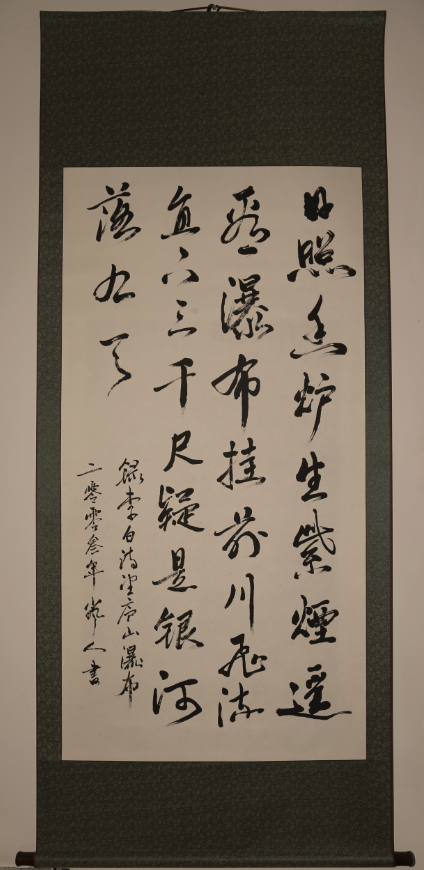 日照香炉生紫煙遥
看瀑布挂前川飛流
直下三千尺疑是銀河
落九天
録李白詩望庐山瀑布
二零零叁年 人書